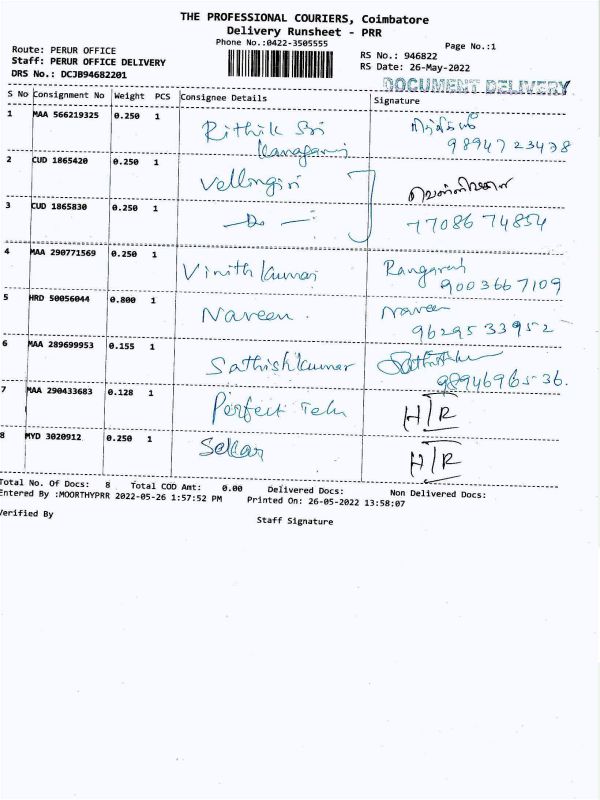 THE PROFESSIONAL COURIERS, Coimbatore
Delivery Runsheet - PRR
Phone No.:0422-3505555
Page No.:1
Route: PERUR OFFICE
RS No.: 946822
Staff: PERUR OFFICE DELIVERY
RS Date: 26-May-2022
DRS No.: DCJB94682201
DOCUMENT DELIVERY
S No Consignment No Weight PCS Consignee Details Signature
1 MAA 566219325 0.250 1 Rithik Sri
98947 23478
2 CUD 1865420 0.250 1 Vellingiri
3 CUD 1865830 0.250 1 -Do-
77086 74854
4 MAA 290771569 0.250 1 Vinith kumar Rangaraj
9003667109
5 HRD 50056044 0.800 1 Naveen. Naveen
9629533952
6 MAA 289699953 0.155 1 Sathishkumar
9894696536.
7 MAA 290433683 0.128 1 Perfect H/R
8 MYD 3020912 0.250 1 Sekar H/R
Total No. Of Docs: 8 Total COD Amt: 0.00 Delivered Docs: Non Delivered Docs:
Entered By :MOORTHYPRR 2022-05-26 1:57:52 PM Printed On: 26-05-2022 13:58:07
Verified By
Staff Signature